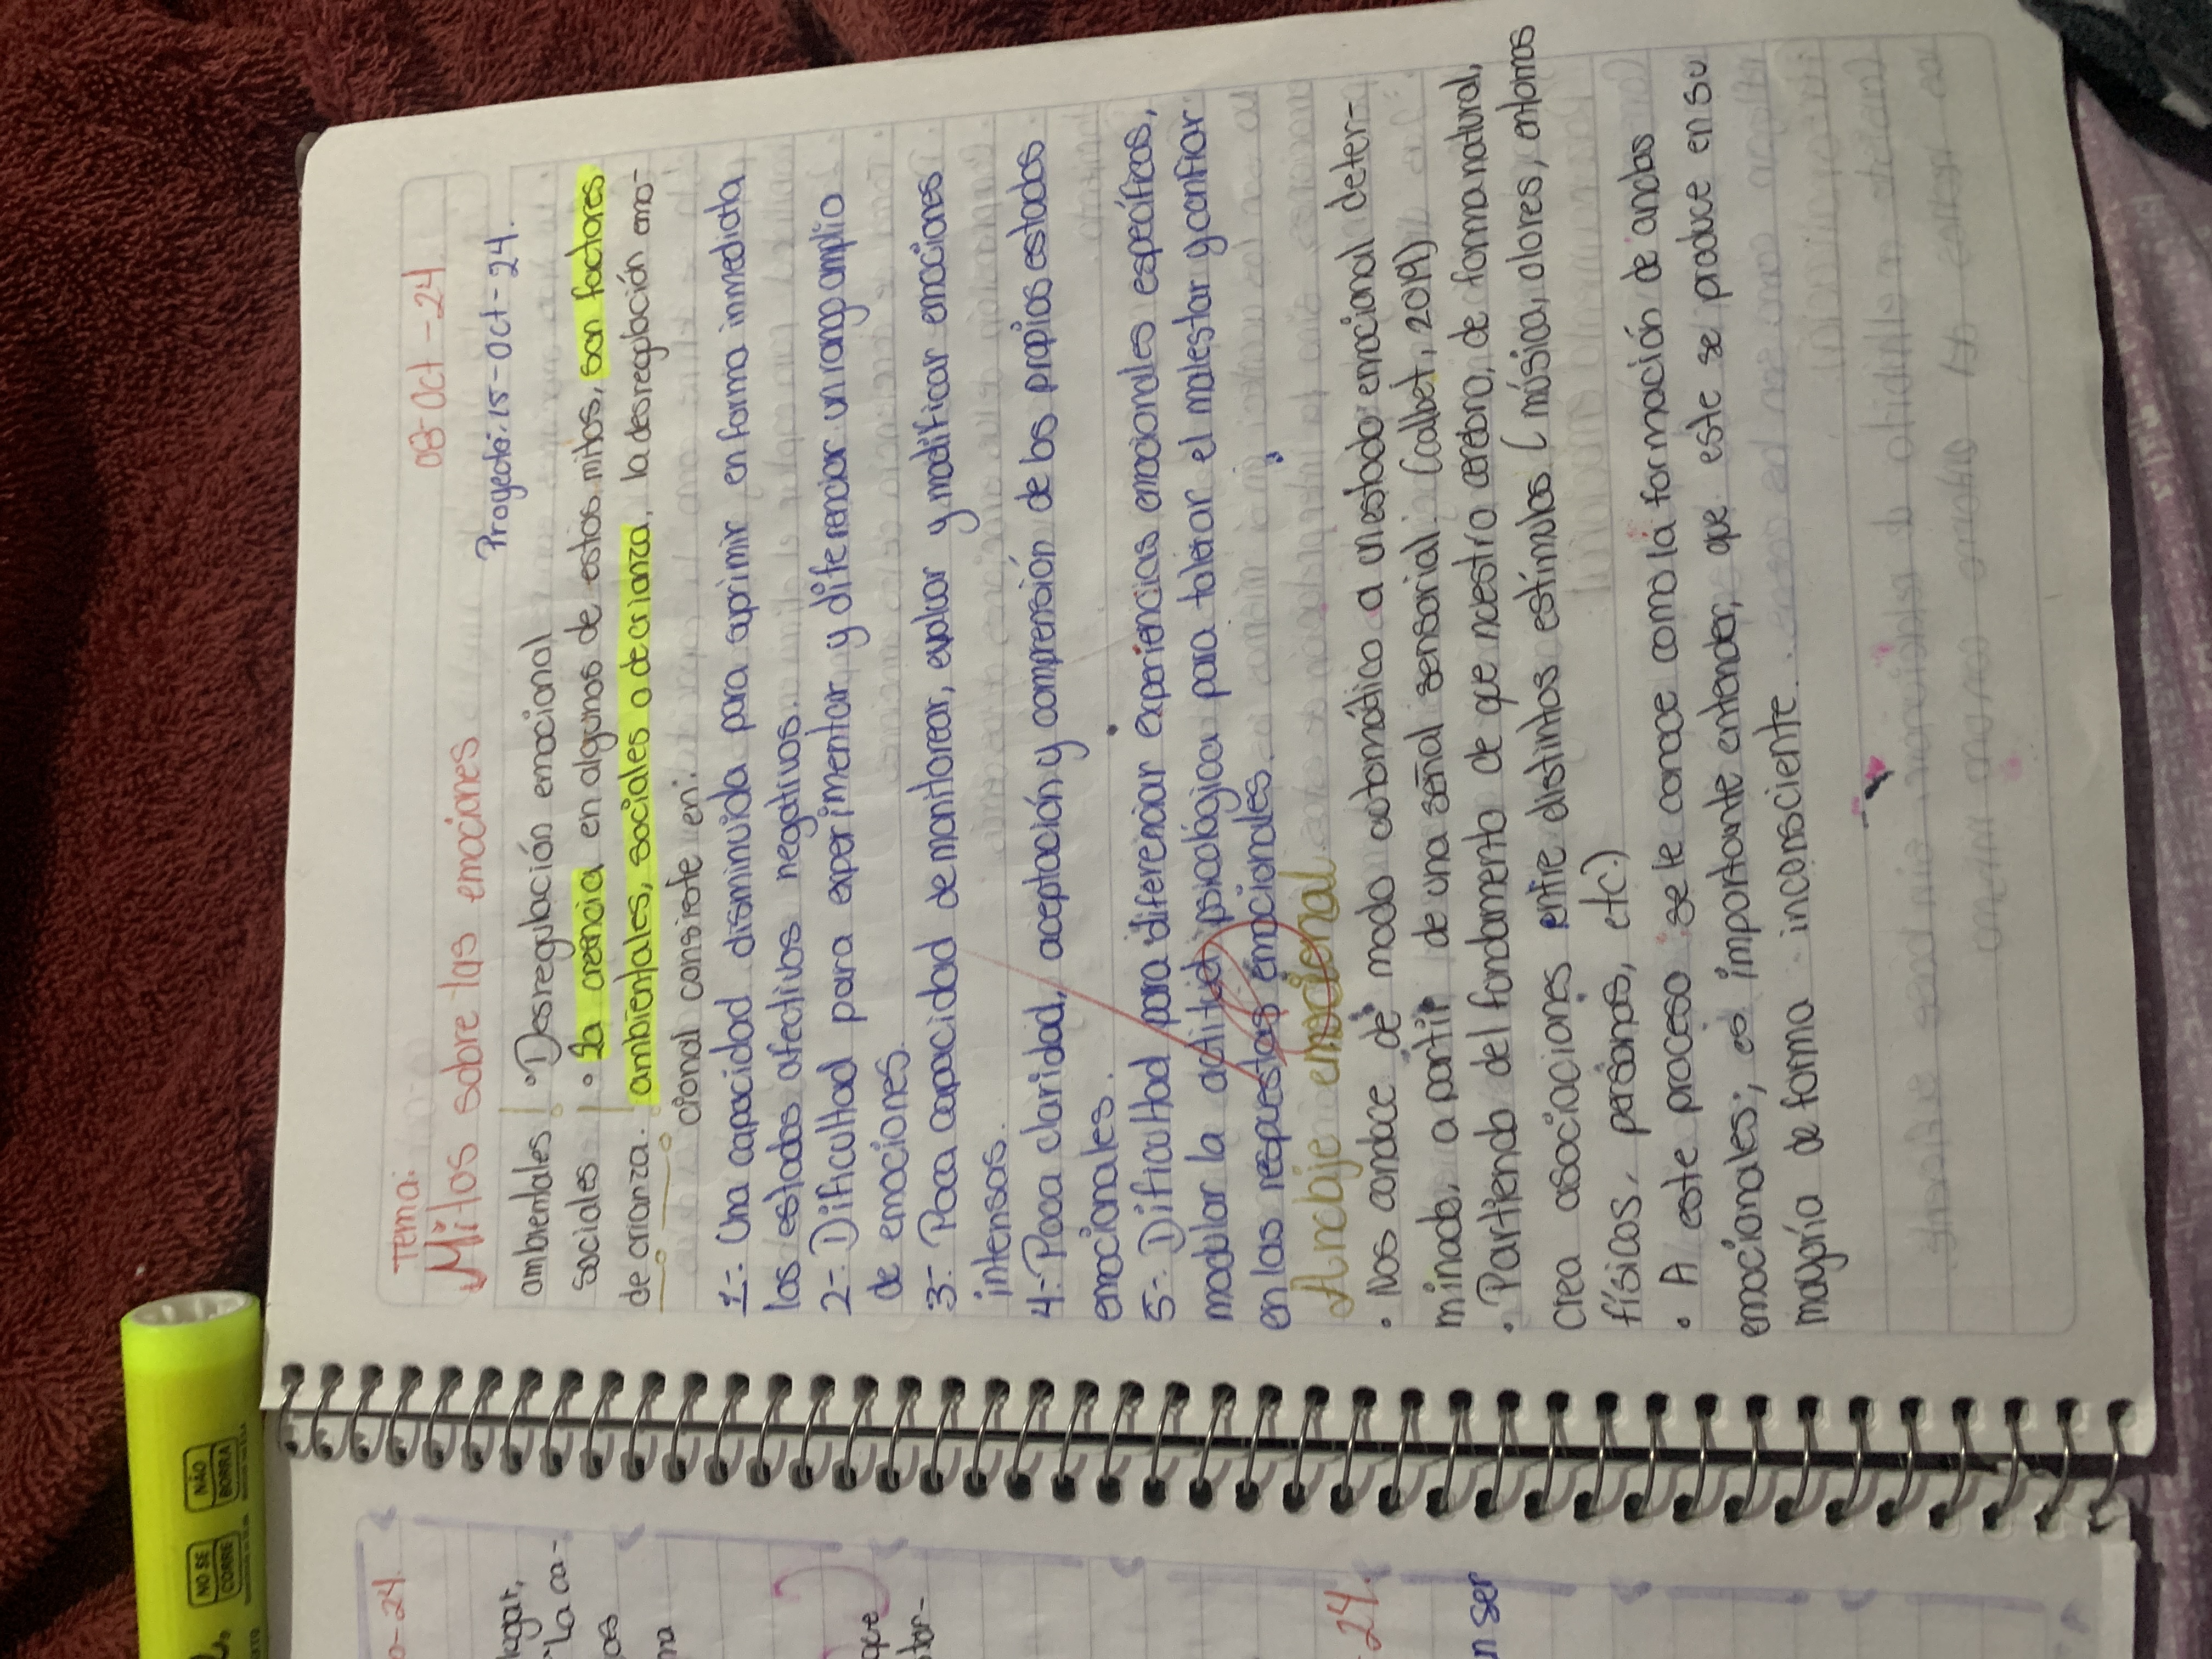 NO SE
CORRE
NÃO
BORRA
o-24.
lugar,
"La ca-
os
na
que
tar-
-24.
n ser
Tema:
08-Oct-24
Mitos sobre las emociones
Proyecto: 15-Oct-24.
ambientales
sociales
de crianza.
• Desregulación emocional
• La creencia en algunos de estos mitos, son factores
ambientales, sociales o de crianza, la desregulación emo-
cional consiste en:
1-. Una capacidad disminuida para suprimir en forma inmediata
los estados afectivos negativos.
2-. Dificultad para experimentar y diferenciar un rango amplio
de emociones.
3-. Poca capacidad de monitorear, evaluar y modificar emociones
intensas.
4-. Poca claridad, aceptación y comprensión de los propios estados
emocionales.
5-. Dificultad para diferenciar experiencias emocionales específicas,
modular la actitud psicológica para tolerar el malestar y confiar
en las respuestas emocionales.
Anclaje emocional
• Nos conduce de modo automático a un estado emocional deter-
minado, a partir de una señal sensorial. (Calbet, 2019)
• Partiendo del fundamento de que nuestro cerebro, de forma natural,
crea asociaciones entre distintos estímulos (música, olores, entornos
físicos, personas, etc.)
• A este proceso se le conoce como la formación de anclas
emocionales; es importante entender, que este se produce en su
mayoría de forma inconsciente.